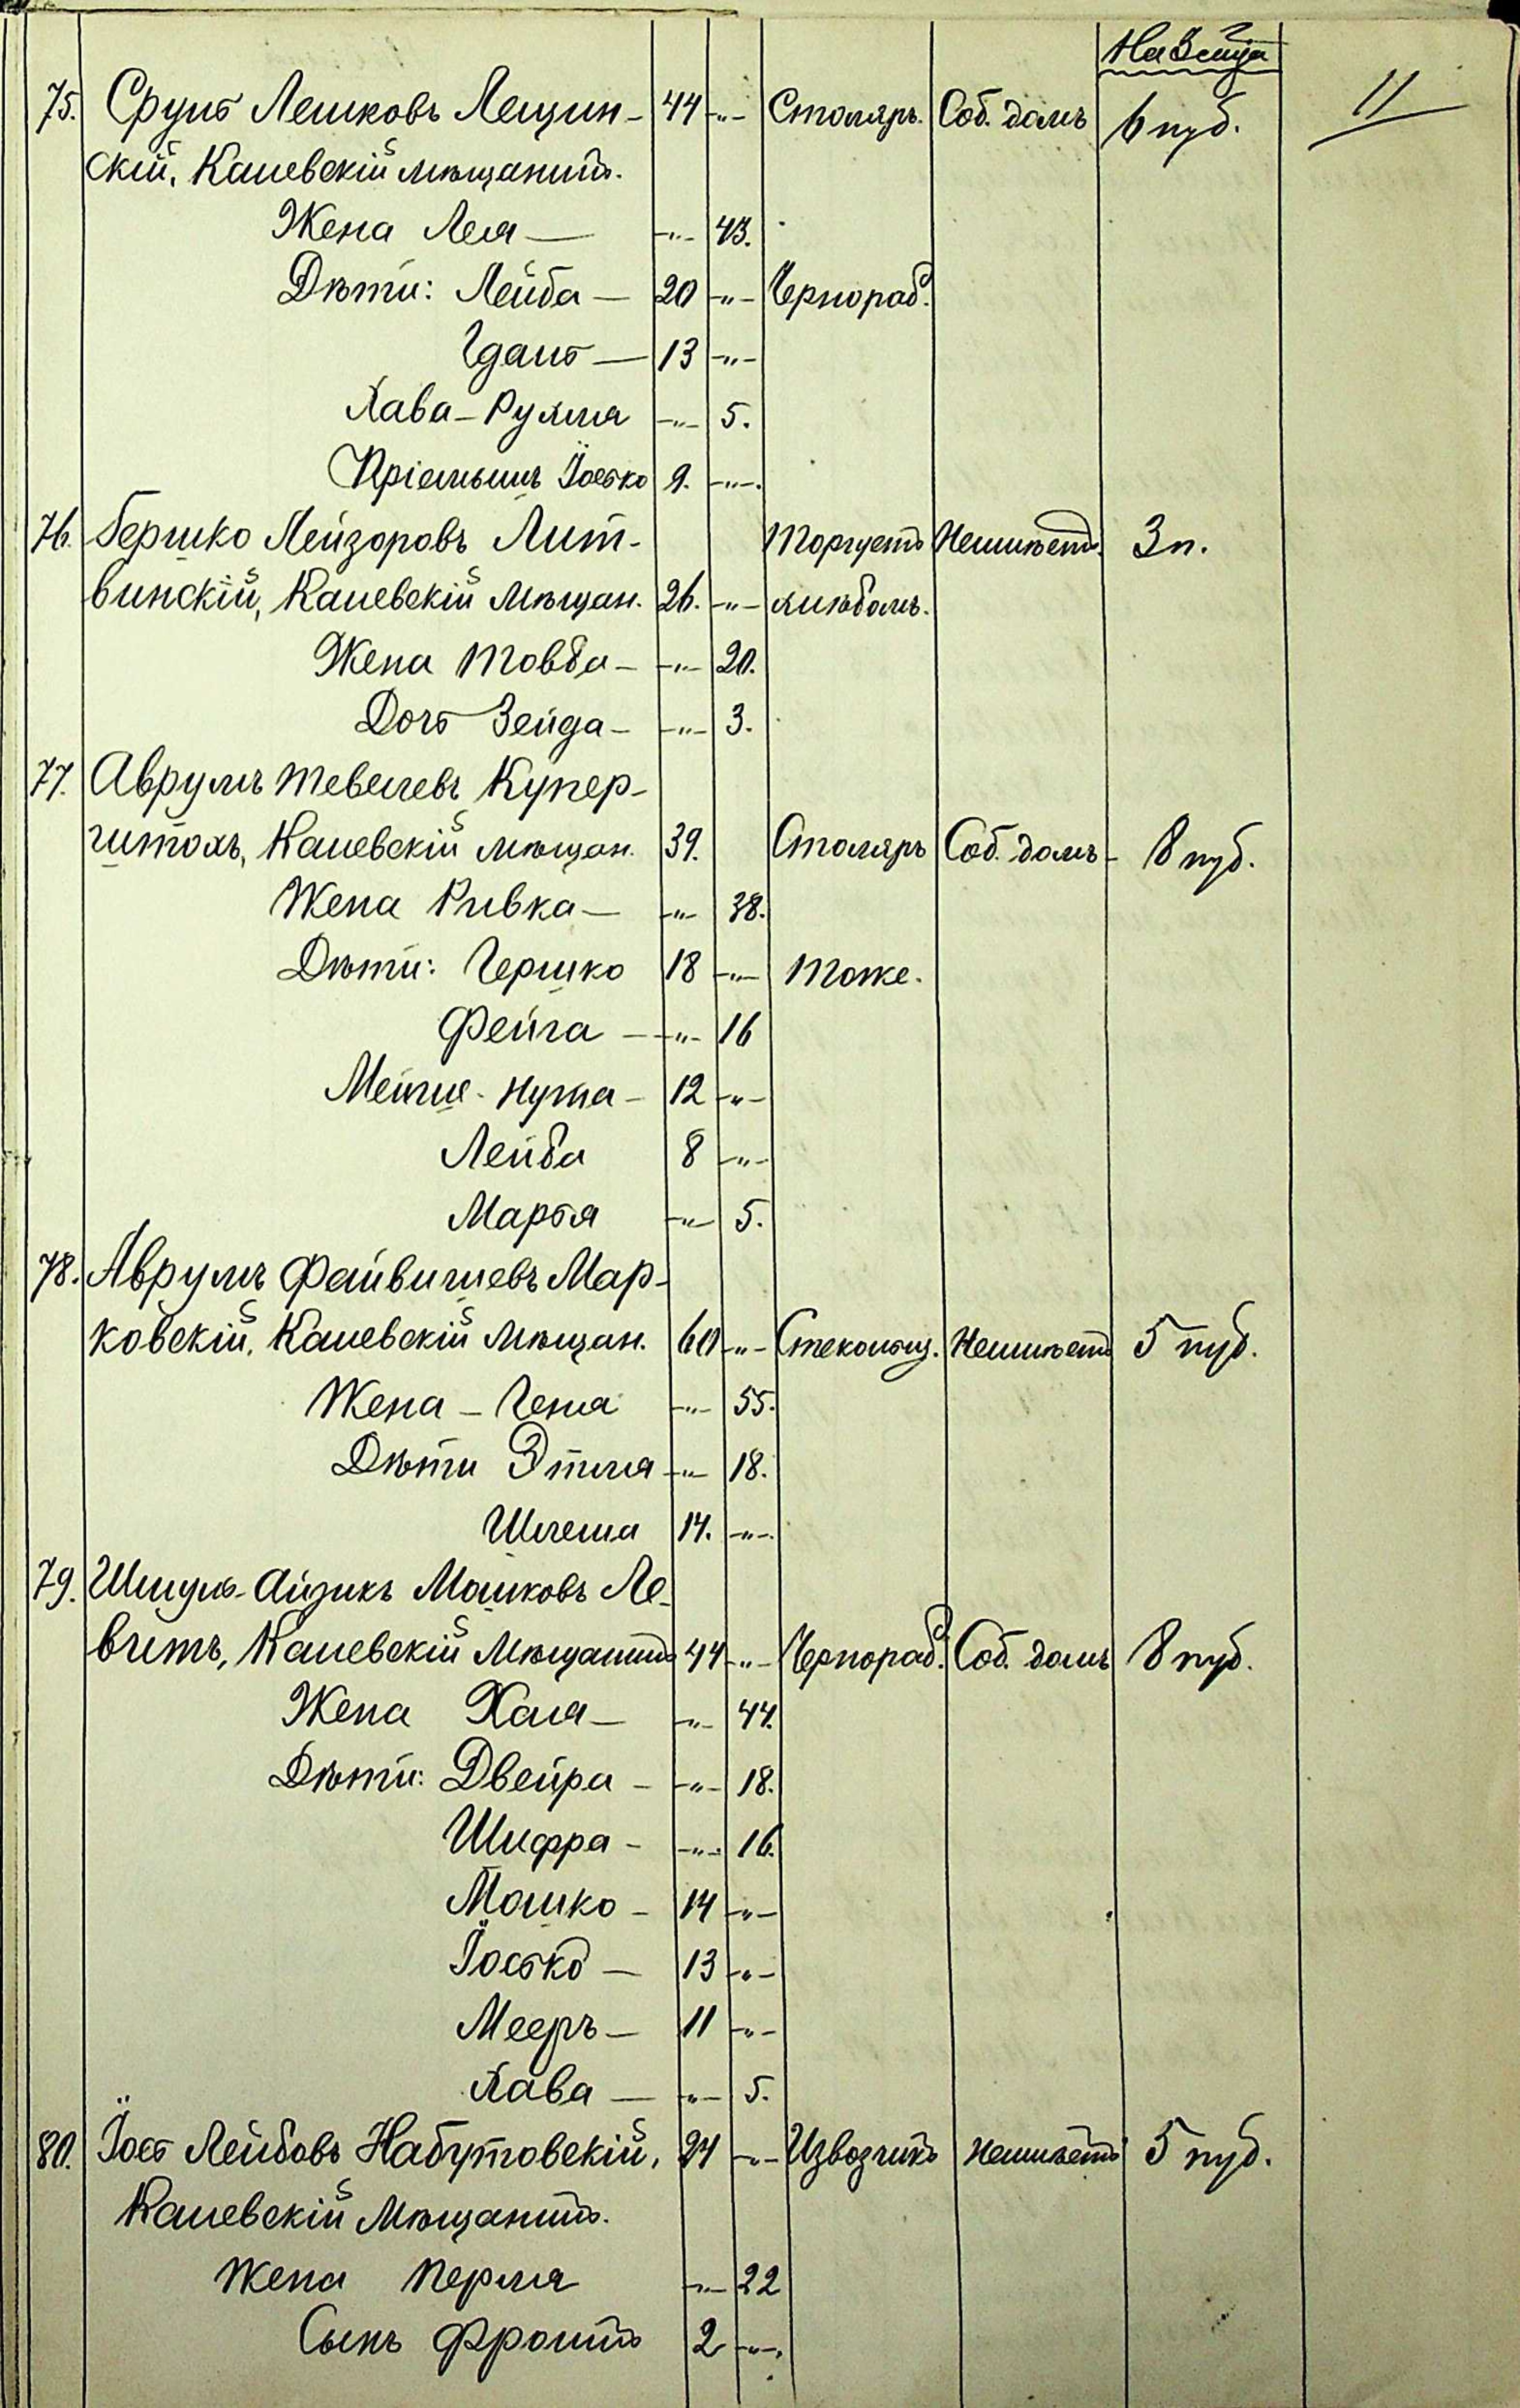 11
75. Сруль Лешковъ Лещин- 44 -"- Столяръ. Соб. домъ 6 пуб.
скій, Каневскій мѣщанинъ.
Жена Лея — -"- 43.
Дѣти: Лейба — 20 -"- Чернораб.
Гдаль — 13 -"-
Хава-Рухля -"- 5.
Пріемышъ Іосько 9. -"-.
76. Бершко Лейзоровъ Лит- Торгуетъ Неимѣетъ. 3 п.
винскій, Каневскій мѣщан. 26. -"- хлѣбомъ.
Жена Товба - -"- 20.
Дочь Зейда - -"- 3.
77. Аврумъ Тевелевъ Купер-
штохъ, Каневскій мѣщан. 39. Столяръ Соб. домъ - 8 пуб.
Жена Ривка — -"- 38.
Дѣти: Гершко 18 -"- Тоже.
Фейга - -"- 16
12 -"-
Лейба 8 -"-
Марья -"- 5.
78. Аврумъ Файвишевъ Мар-
ковскій, Каневскій мѣщан. 60 -"- Стекольщ. Неимѣетъ 5 пуб.
Жена - Геня -"- 55.
Дѣти Этля -"- 18.
Шлема 14. -"-.
79. Шмуль-Айзикъ Мошковъ Ле-
витъ, Каневскій мѣщанинъ 44 -"- Чернораб. Соб. домъ 8 пуб.
Жена Хая - -"- 44.
Дѣти: Двейра - -"- 18.
Шифра - -"- 16.
Мошко - 14 -"-
Іосько — 13 -"-
Мееръ — 11 -"-
Хава — -"- 5.
80. Іось Лейбовъ Набутовскій, 24 -"- Извозчикъ Неимѣетъ 5 пуб.
Каневскій мѣщанинъ.
Жена Перля -"- 22
Сынъ Фроимъ 2 -"-.